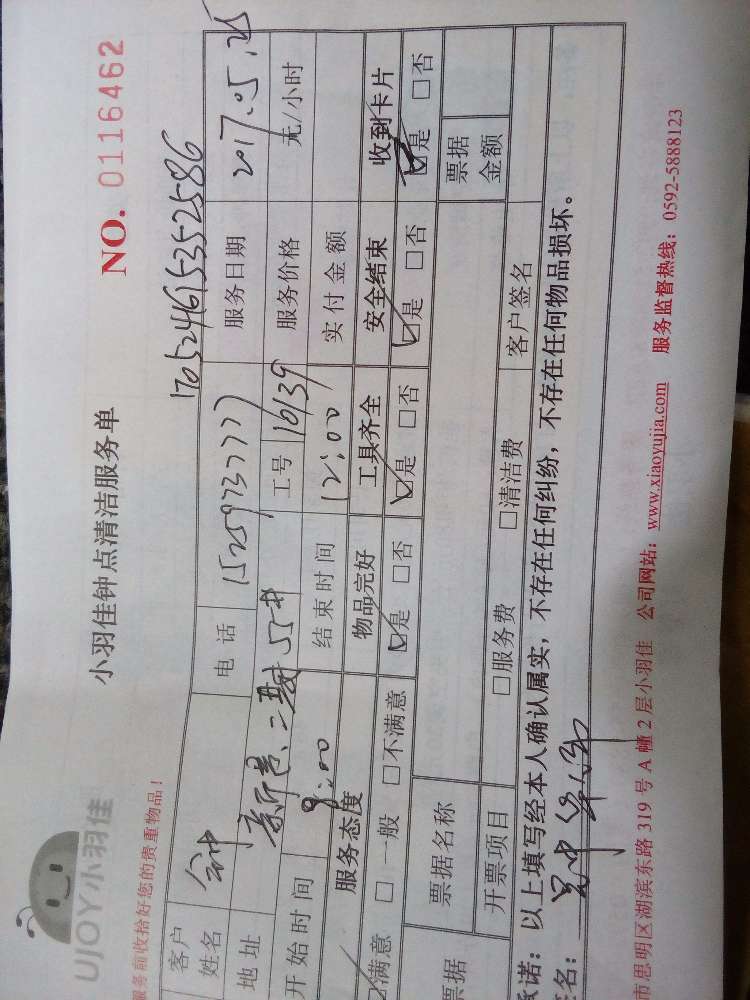 UJOY小羽佳
小羽佳钟点清洁服务单
NO. 0116462
服务前收拾好您的贵重物品！
170524615352586
客户姓名 电话 服务日期 2017.05.25
地址 工号 16139 服务价格 元/小时
开始时间 9:00 结束时间 12:00 实付金额
服务态度 物品完好 工具齐全 安全结束 收到卡片
☑满意 □一般 □不满意 ☑是 □否 ☑是 □否 ☑是 □否 ☑是 □否
票据 票据名称 票据金额
开票项目 □服务费 □清洁费 客户签名
承诺：以上填写经本人确认属实，不存在任何纠纷，不存在任何物品损坏。
签名：
市思明区湖滨东路 319 号 A 幢 2 层小羽佳 公司网站：www.xiaoyujia.com 服务监督热线：0592-5888123